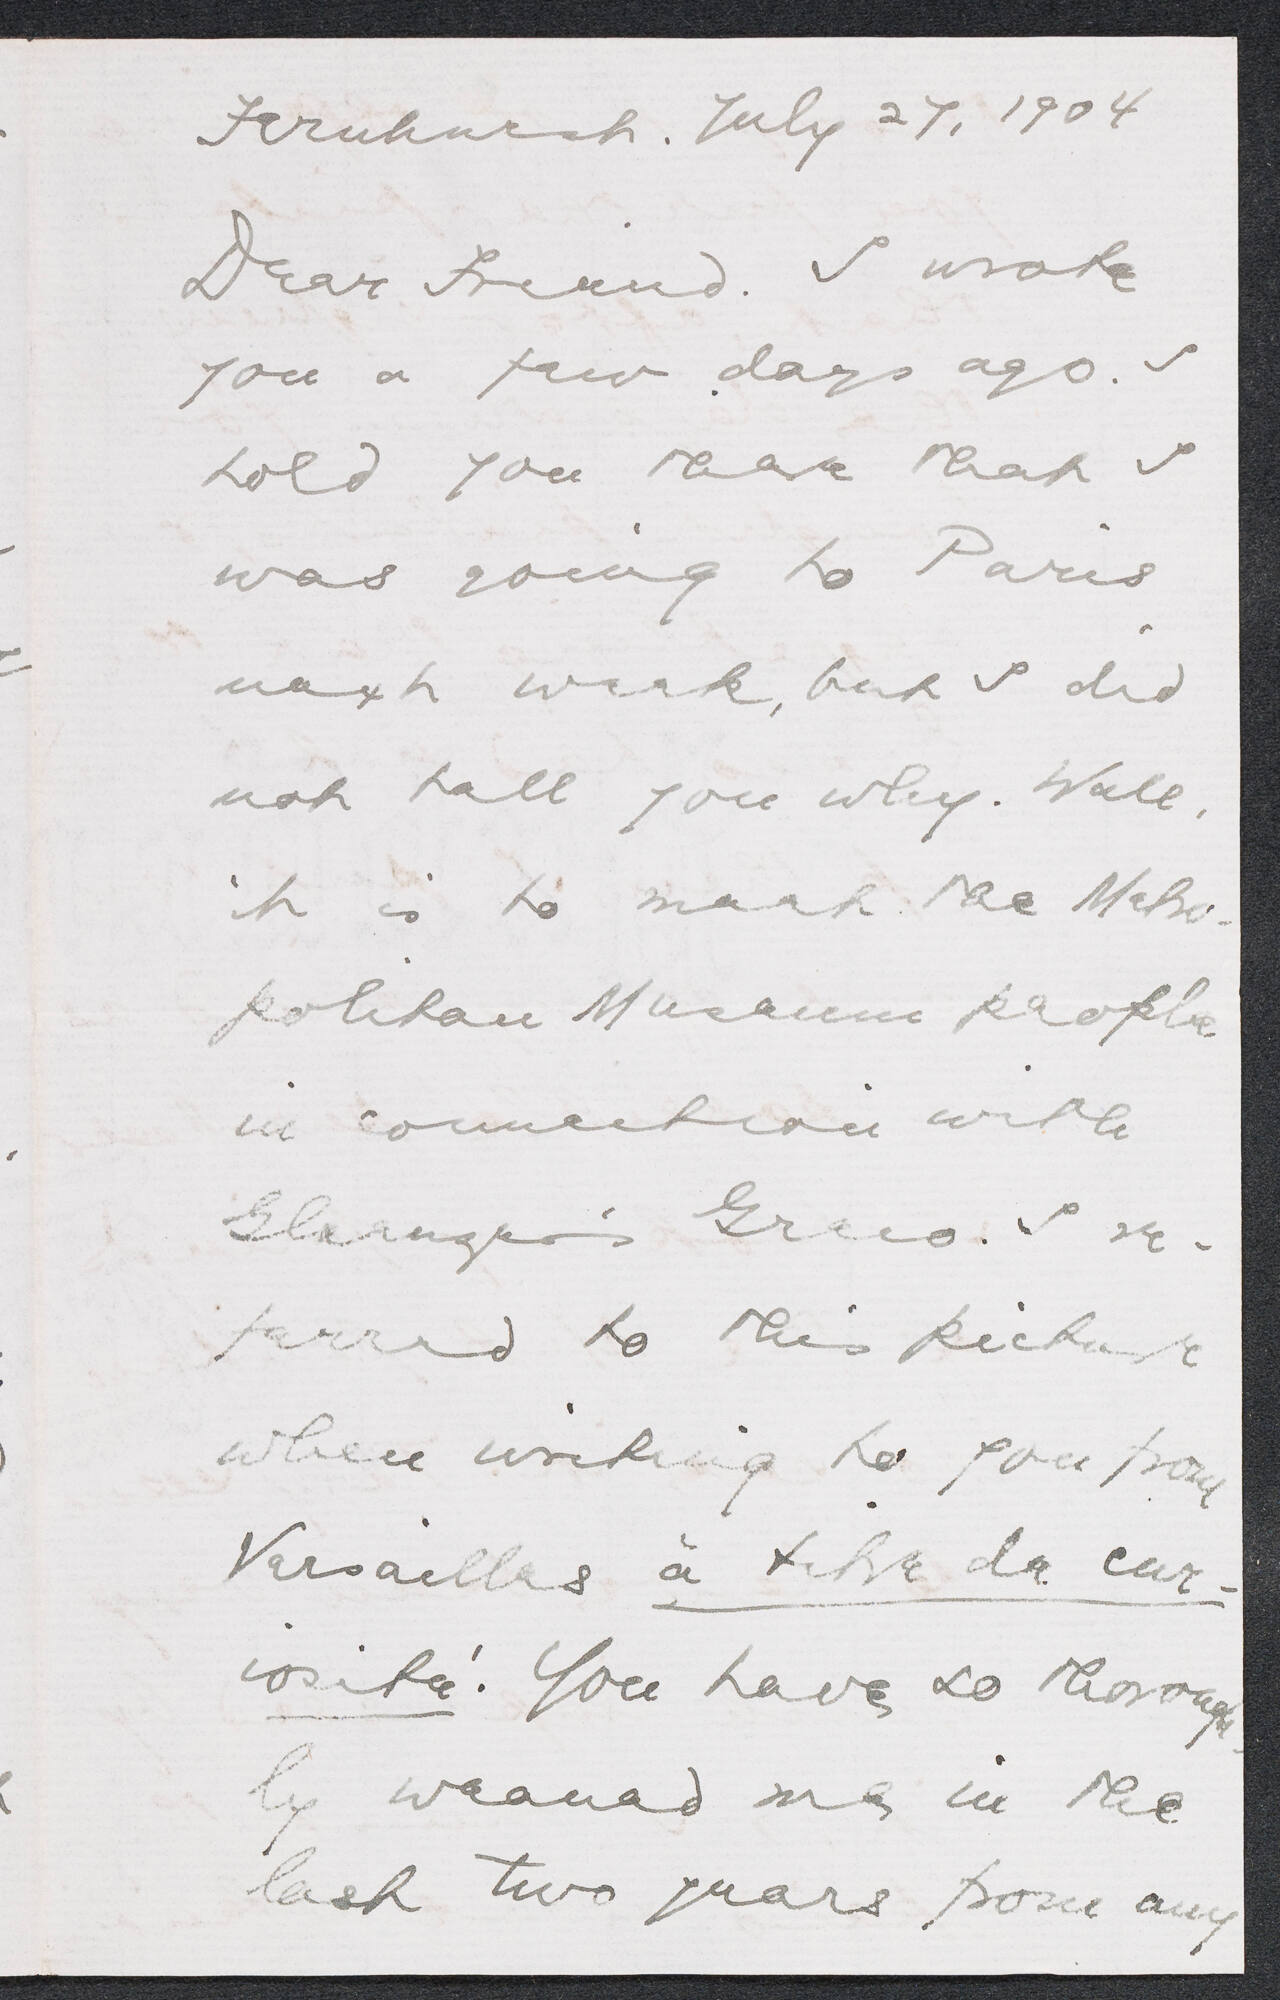 Fernhurst. July 27, 1904
Dear Friend. I wrote
you a few days ago. I
told you then that I
was going to Paris
next week, but I did
not tell you why. Well,
it is to meet the Metro-
politan Museum people
in connection with
Glaenzer's Greco. I re-
ferred to this picture
when writing to you from
Versailles à titre de cur-
iosité. You have so thorough-
ly weaned me in the
last two years from any